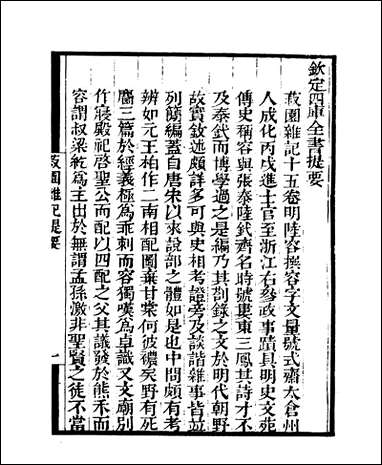 欽定四庫全書提要
菽園雜記十五卷明陸容撰容字文量號式齋太倉州
人成化丙戌進士官至浙江右參政事蹟具明史文苑
傳史稱容與張泰陸釴齊名時號婁東三鳳其詩才不
及泰釴而博學過之是編乃其劄錄之文於明代朝野
故實敘述頗詳多可與史相考證旁及談諧雜事皆並
列簡編蓋自唐宋以來說部之體如是也中間頗有考
辨如元王柏作二南相配圖棄甘棠何彼穠矣野有死
麕三篇於經義極為乖剌而容獨嘆為卓識又文廟別
作寢殿祀啓聖公而配以四配之父其議發於熊禾而
容謂叔梁紇為主出於無謂孟孫激非聖賢之徒不當
菽園雜記提要
一